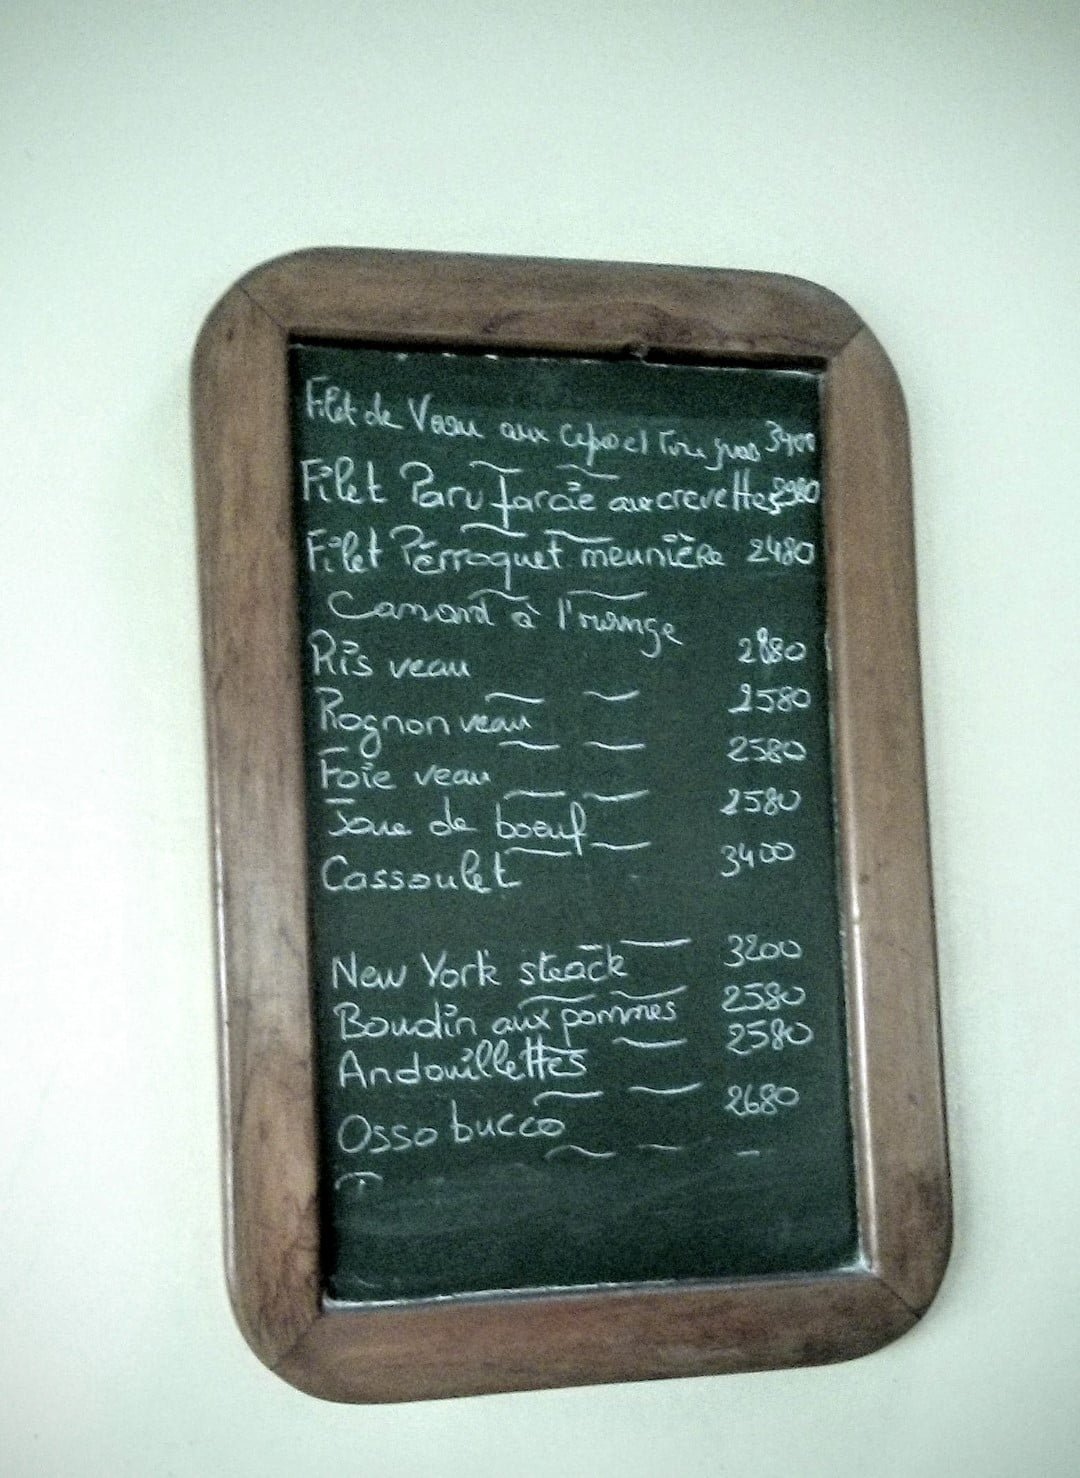 Filet de Veau aux cepes et Foie gras 3400
Filet Paru farcie aux crevettes 2980
Filet Perroquet meunière 2480
Canard à l'orange
Ris veau 2880
Rognon veau 2580
Foie veau 2580
Joue de boeuf 2580
Cassoulet 3400
New York steack 3200
Boudin aux pommes 2580
Andouillettes 2580
Osso bucco 2680